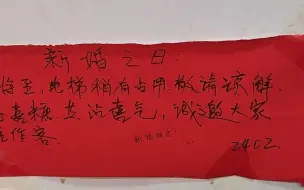 新婚之日:
将至,电梯稍有占用敬请谅解.
喜糖共沾喜气,诚邀大家
作客.
2402.